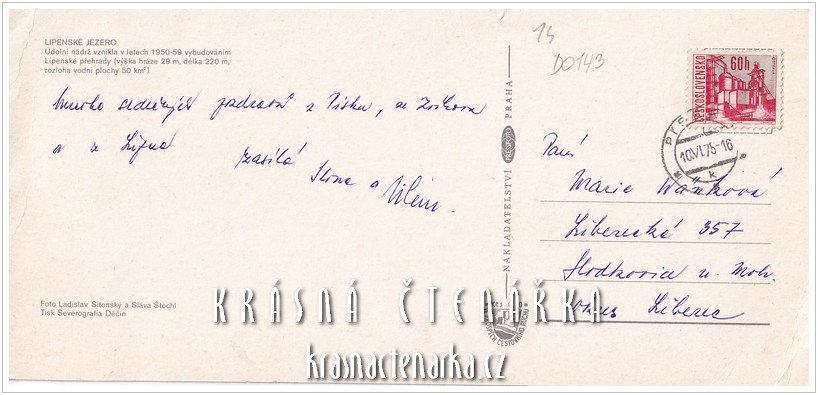 LIPENSKÉ JEZERO
Údolní nádrž vznikla v letech 1950-59 vybudováním
Lipenské přehrady (výška hráze 29 m, délka 220 m,
rozloha vodní plochy 50 km²)
mnoho srdečných pozdravů z Písku, ze Zvíkova
a z Lipna
zasílá
Ilona a Vilém.
Foto Ladislav Sitenský a Sláva Štochl
Tisk Severografia Děčín
NAKLADATELSTVÍ PRESSFOTO PRAHA
14
DO143
ČESKOSLOVENSKO
60h
10.VI.75-16
k
Paní
Marie
Liberecká 357
Hodkovice n. Moh.
okres Liberec
CESTOVNÍHO RUCHU
KRÁSNÁ ČTENÁŘKA
krasnactenarka.cz